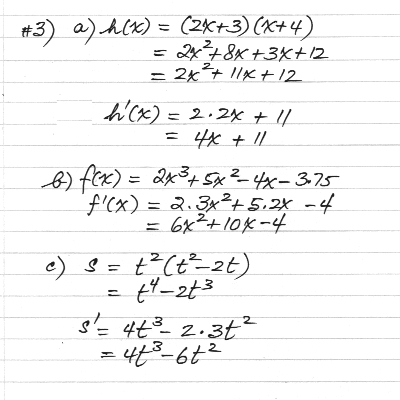 #3) a) h(x) = (2x+3)(x+4)
= 2x²+8x+3x+12
= 2x²+11x+12
h'(x) = 2·2x + 11
= 4x + 11
b) f(x) = 2x³+5x²-4x-3.75
f'(x) = 2·3x²+5·2x-4
= 6x²+10x-4
c) s = t²(t²-2t)
= t⁴-2t³
s' = 4t³-2·3t²
= 4t³-6t²